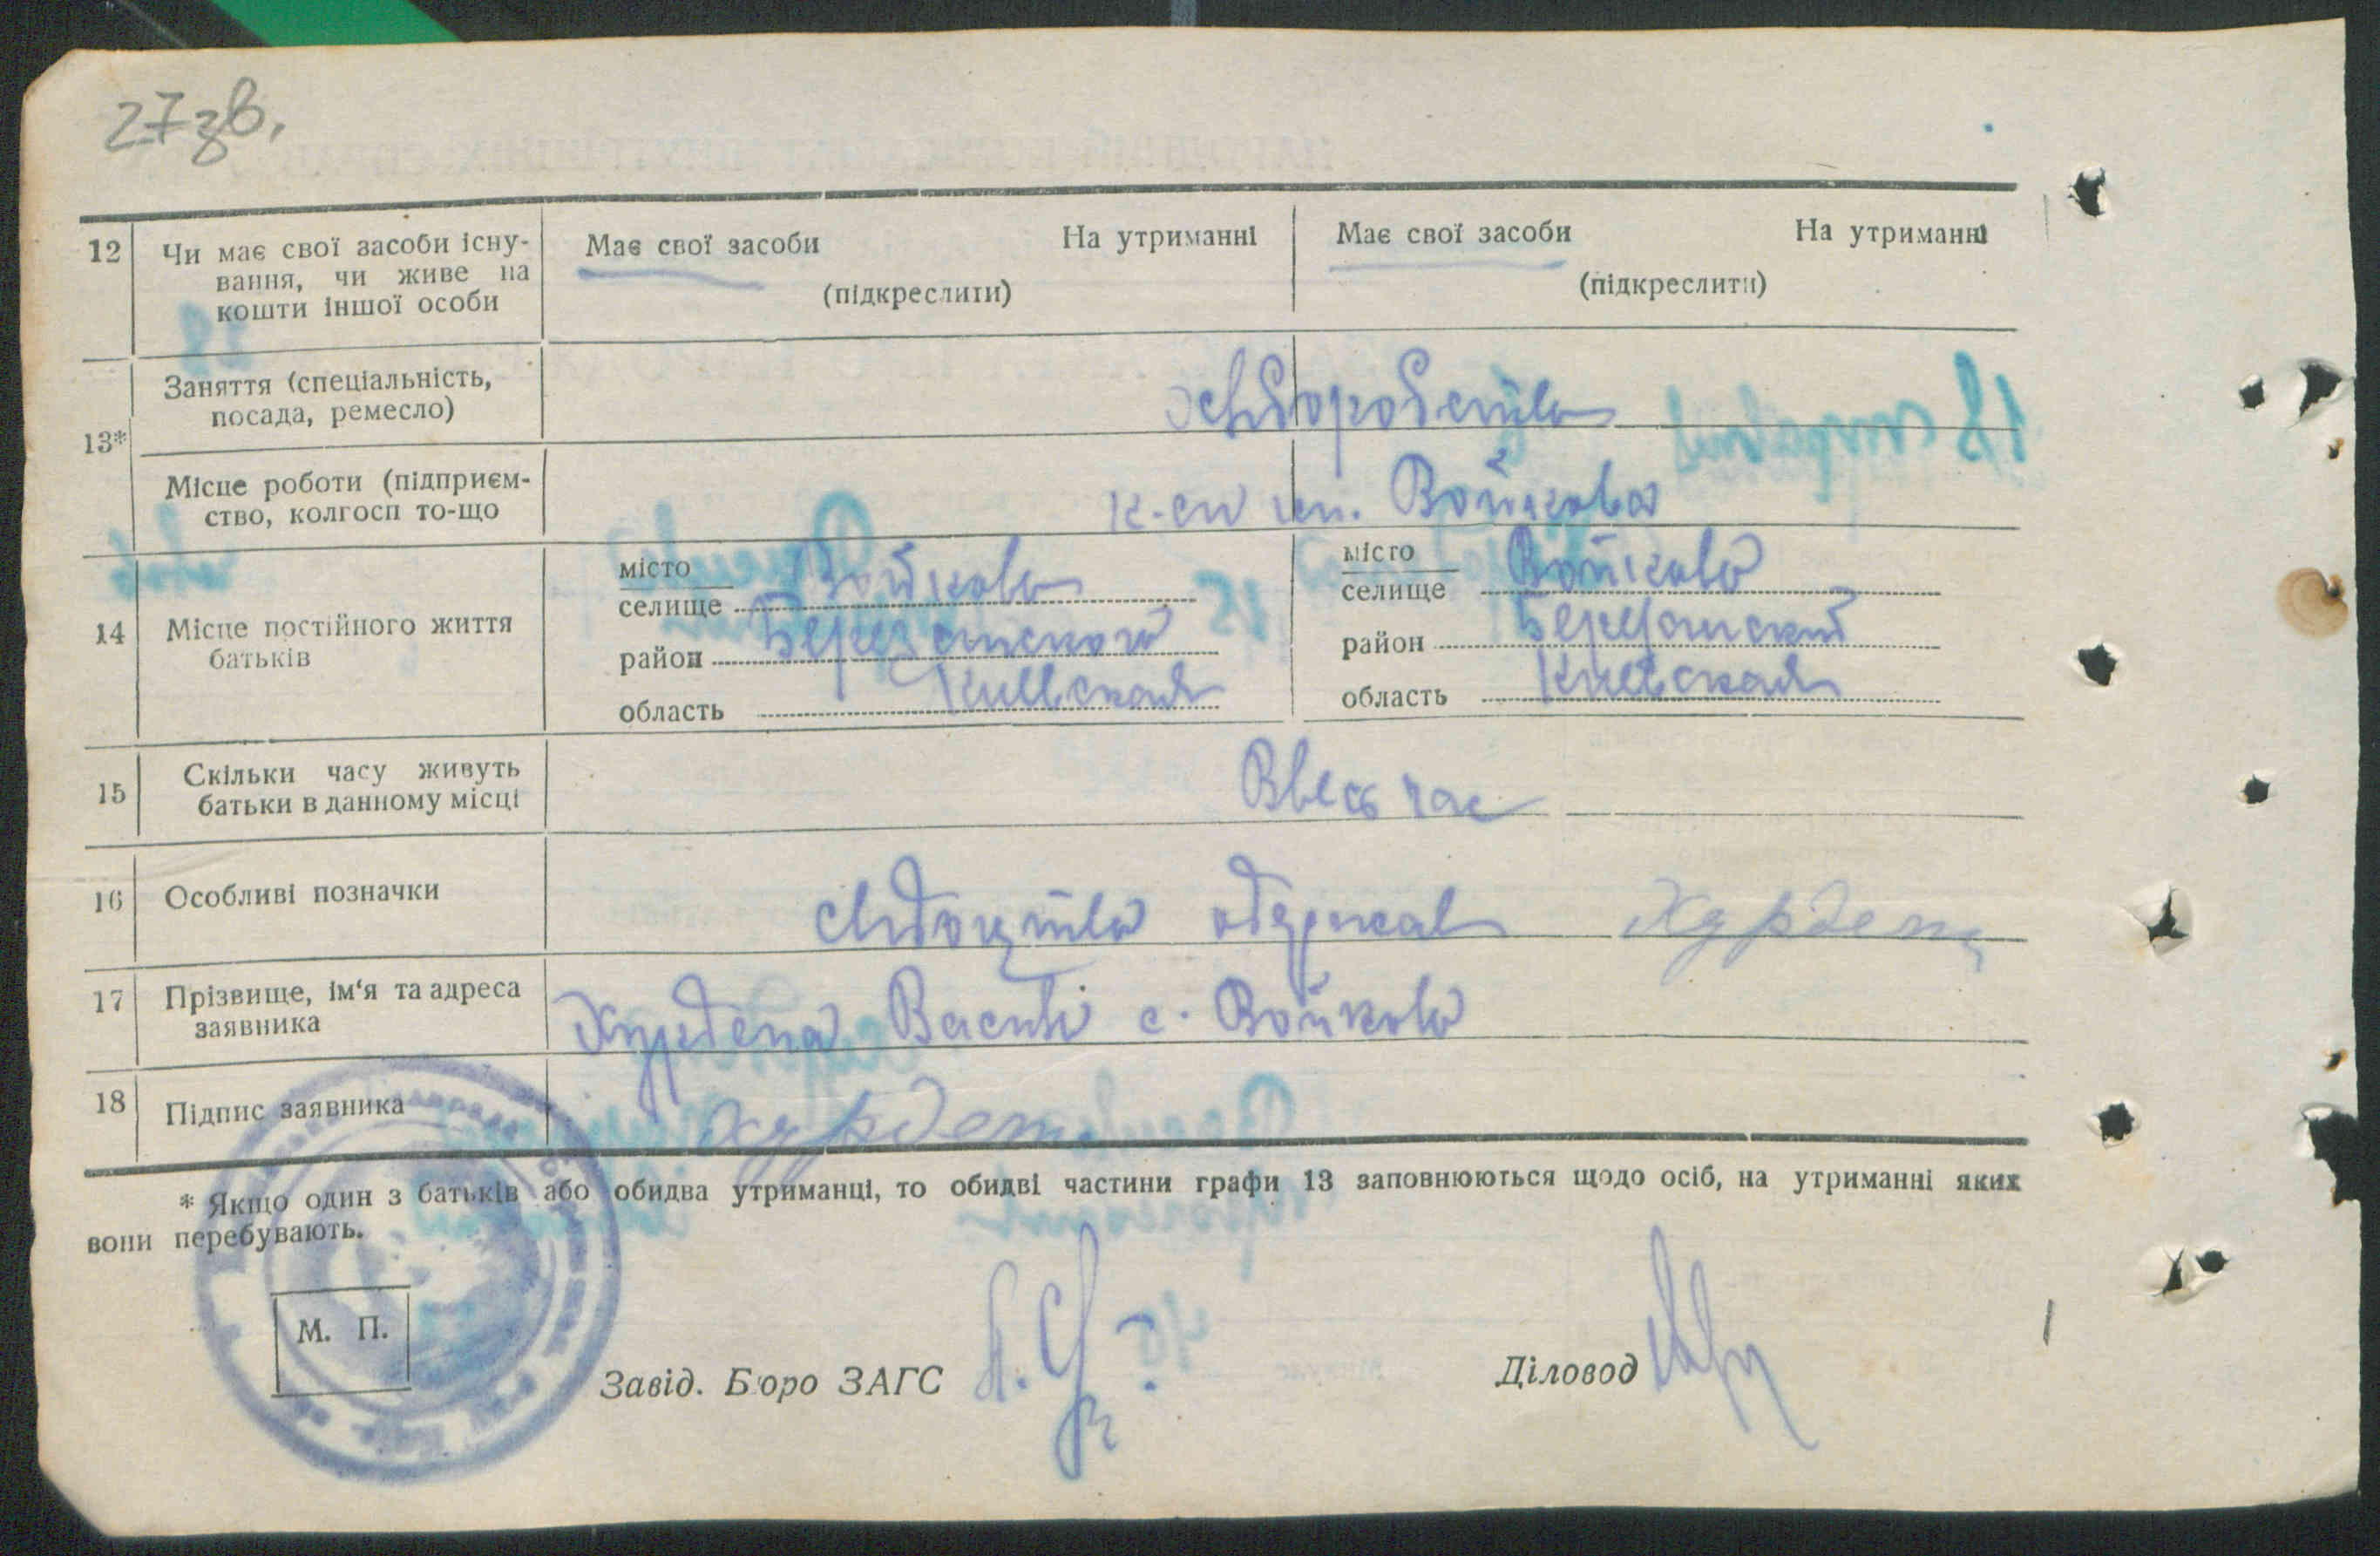 27зв.
12 Чи має свої засоби існу-
вання, чи живе на
кошти іншої особи
Має свої засоби На утриманні
(підкреслити)
Має свої засоби На утриманні
(підкреслити)
13*
Заняття (спеціальність,
посада, ремесло)
Місце роботи (підприєм-
ство, колгосп то-що
к-сп им. Войкова
14 Місце постійного життя
батьків
місто
селище Войкова
район Березанский
область Киевская
місто
селище Войкова
район Березанский
область Киевская
15 Скільки часу живуть
батьки в данному місці
Ввесь час
16 Особливі позначки
одержав
17 Прізвище, ім‘я та адреса
заявника
Васи с. Войкова
18 Підпис заявника
* Якщо один з батьків або обидва утриманці, то обидві частини графи 13 заповнюються щодо осіб, на утриманні яких
вони перебувають.
М. П.
Завід. Бюро ЗАГС
Діловод